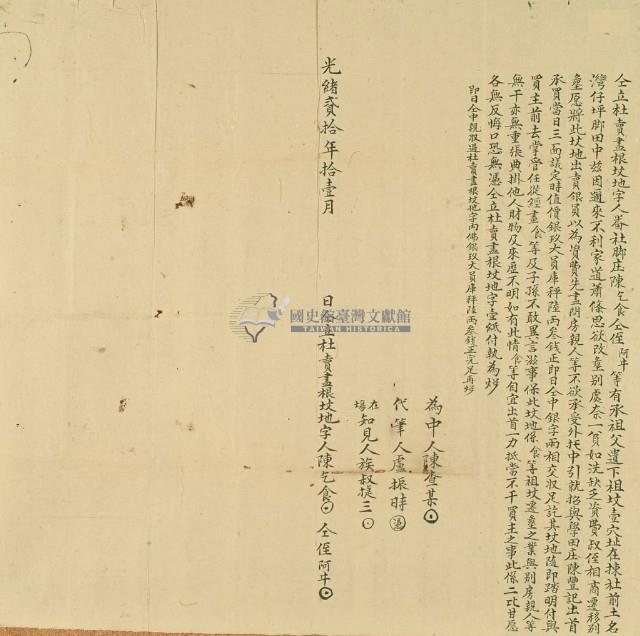 仝立杜賣盡根坟地字人番社脚庄陳乞食仝侄阿斗等有承祖父遺下祖坟壹穴址在棟社前土名
灣仔坪脚田中玆因邇來不利家道蕭條思欲改塟別處奈一貧如洗缺乏資費叔侄相商遷移別
塟愿將此坟地出賣銀員以為資費先盡問房親人等不欲承受外托中引就招與學田庄陳豐記出首
承買當日三面議定時值價銀玖大員庫秤陸両叁錢正即日仝中銀字両相交收足訖其坟地隨即踏明付與
買主前去掌管任從經畫食等及子孫不敢異言滋事保此坟地係食等祖坟遷塟之業與別房親人等
無干亦無重張典掛他人財物及來歷不明如有此情食等自宜出首一力抵當不干買主之事此係二比甘愿
各無反悔口恐無憑仝立杜賣盡根坟地字壹紙付執為炤
即日仝中親收過杜賣盡根坟地字內佛銀玖大員庫秤陸両叁錢正完足再炤
為中人陳查某
代筆人盧振時
在塲知見人族叔提三
光緒貳拾年拾壹月 日仝立杜賣盡根坟地字人陳乞食 仝侄阿斗
國史館臺灣文獻館
TAIWAN HISTORICA